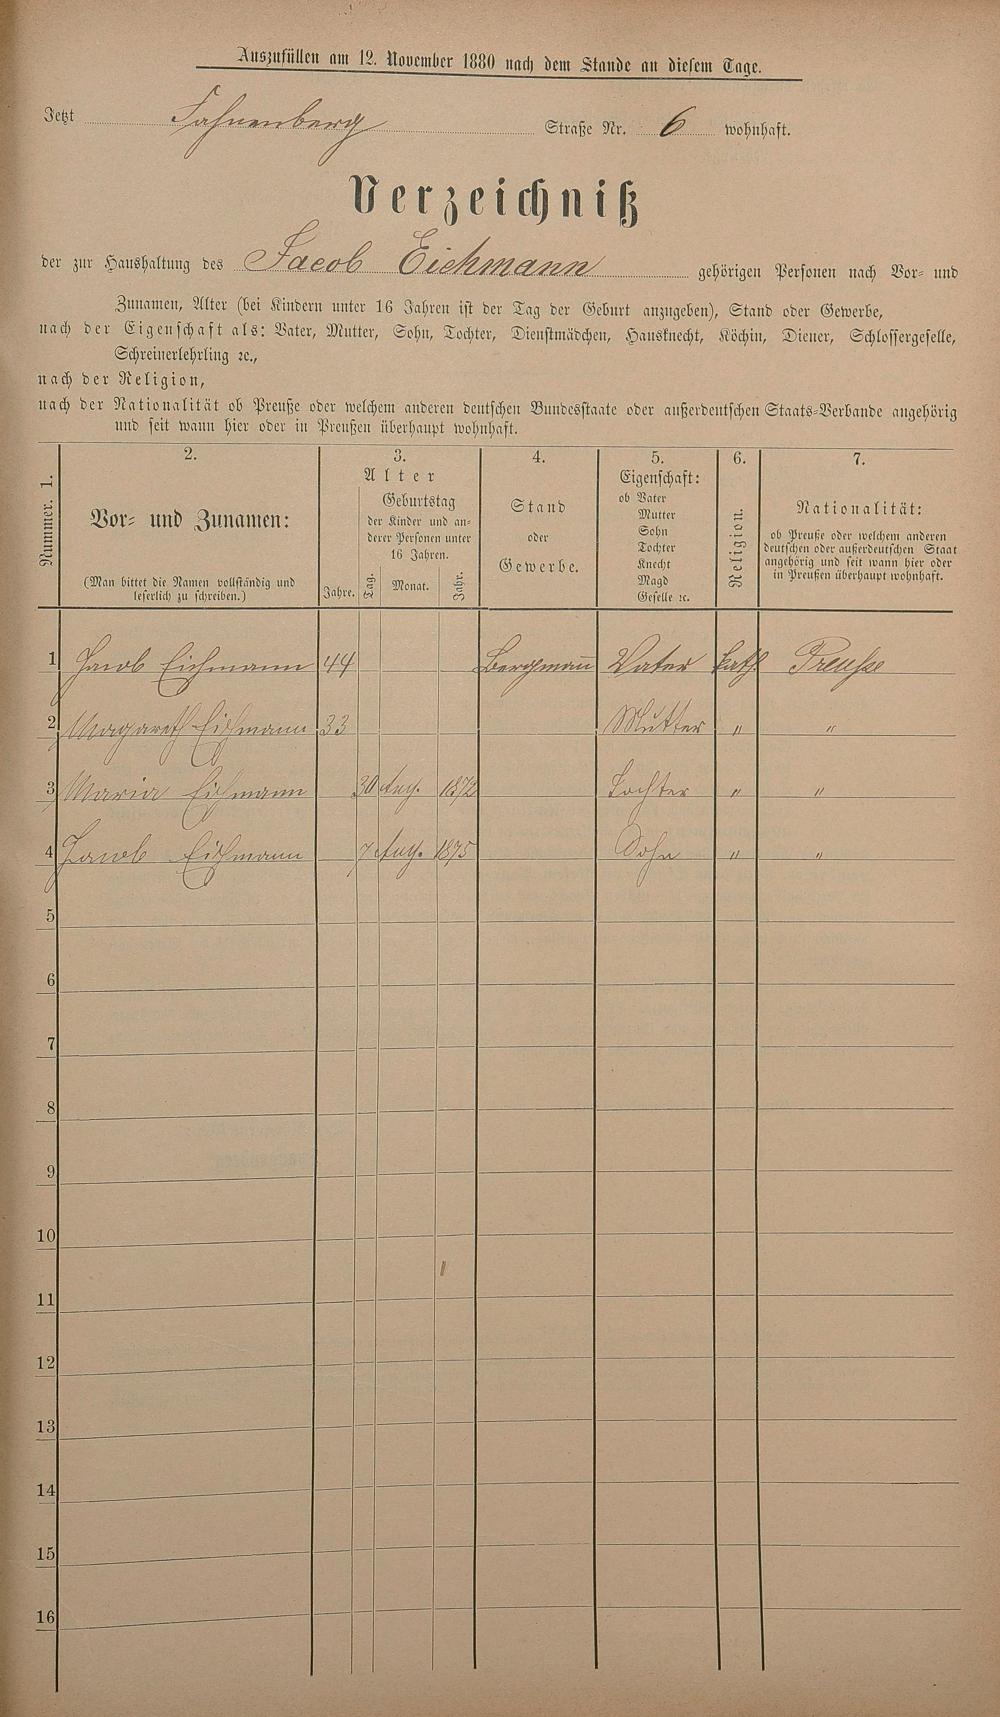 Auszufüllen am 12. November 1880 nach dem Stande an diesem Tage.
Jetzt Fahnenberg Straße Nr. 6 wohnhaft.
Verzeichniß
der zur Haushaltung des Jacob Eichmann gehörigen Personen nach Vor- und
Zunamen, Alter (bei Kindern unter 16 Jahren ist der Tag der Geburt anzugeben), Stand oder Gewerbe,
nach der Eigenschaft als: Vater, Mutter, Sohn, Tochter, Dienstmädchen, Hausknecht, Köchin, Diener, Schlossergeselle,
Schreinerlehrling ꝛc.,
nach der Religion,
nach der Nationalität ob Preuße oder welchem anderen deutschen Bundesstaate oder außerdeutschen Staats-Verbande angehörig
und seit wann hier oder in Preußen überhaupt wohnhaft.
Nummer. 1.
2.
Vor- und Zunamen:
(Man bittet die Namen vollständig und
leserlich zu schreiben.)
3.
Alter
Jahre.
Geburtstag
der Kinder und an-
derer Personen unter
16 Jahren.
Tag. Monat. Jahr.
4.
Stand
oder
Gewerbe.
5.
Eigenschaft:
ob Vater
Mutter
Sohn
Tochter
Knecht
Magd
Geselle ꝛc.
6.
Religion.
7.
Nationalität:
ob Preuße oder welchem anderen
deutschen oder außerdeutschen Staat
angehörig und seit wann hier oder
in Preußen überhaupt wohnhaft.
1 Jacob Eichmann 44 Bergmann Vater kath. Preuße
2 Magareth Eichmann 33 Mutter " "
3 Maria Eichmann 30 Aug. 1872 Tochter " "
4 Jacob Eichmann 7 Aug. 1875 Sohn " "
5
6
7
8
9
10
11
12
13
14
15
16